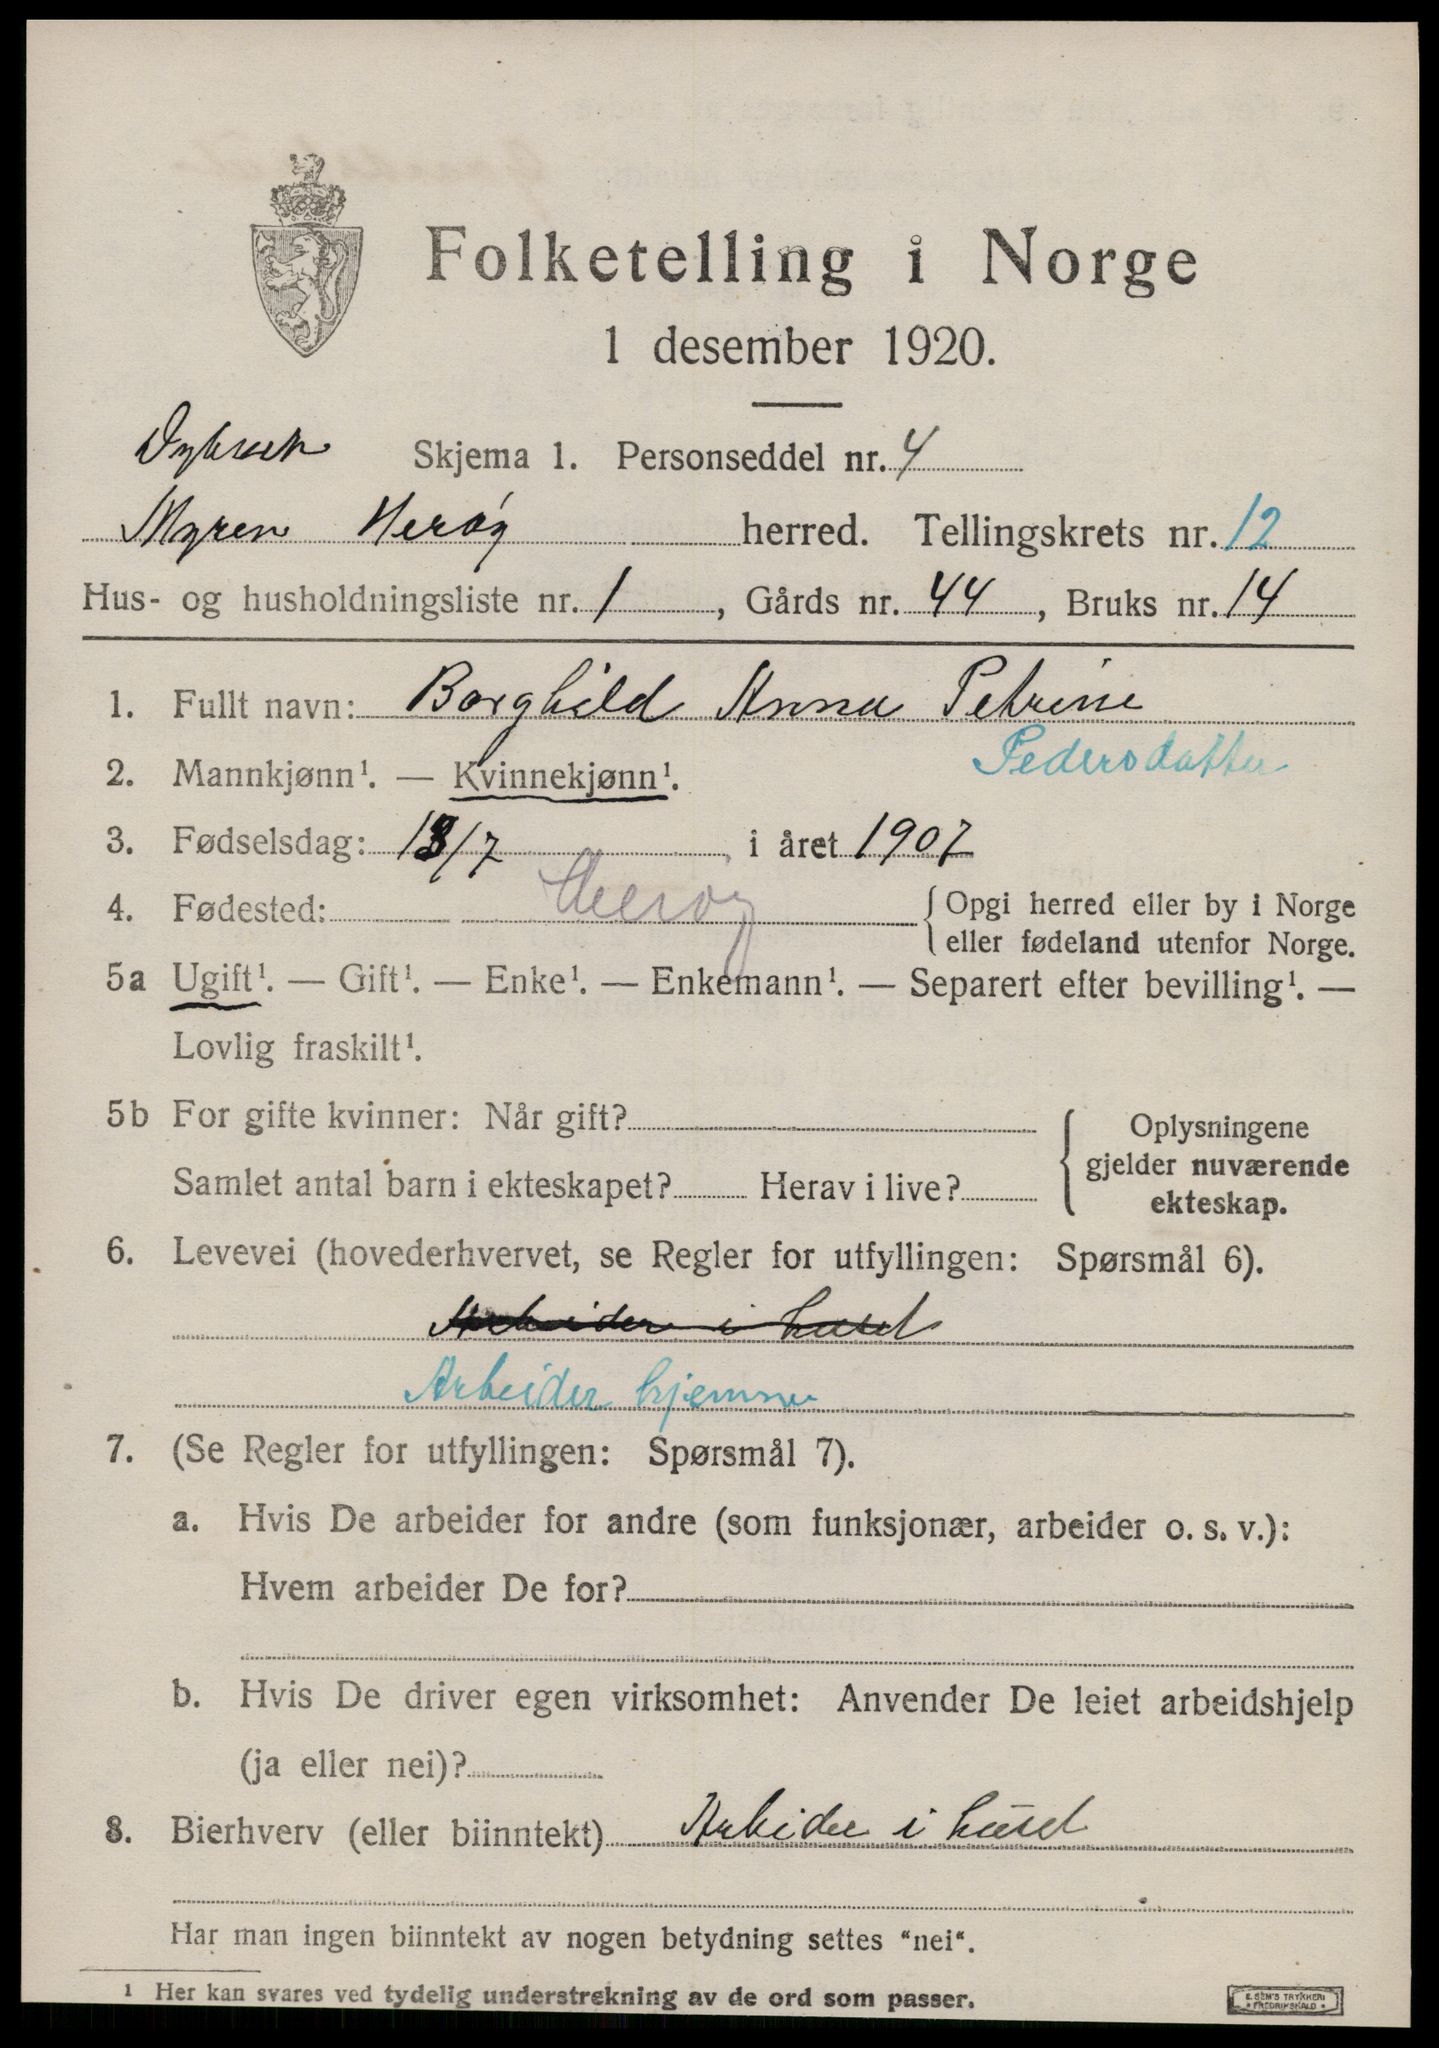 Folketelling i Norge
1 desember 1920.
Skjema 1. Personseddel nr. 4
Myren Herøy herred. Tellingskrets nr. 12
Hus- og husholdningsliste nr. 1, Gårds nr. 44, Bruks nr. 14
1. Fullt navn: Borghild Anna Petrine
Pedersdatter
2. Mannkjønn¹. — Kvinnekjønn¹.
3. Fødselsdag: 13/7, i året 1907
4. Fødested: Herøy { Opgi herred eller by i Norge
eller fødeland utenfor Norge.
5a Ugift¹. — Gift¹. — Enke¹. — Enkemann¹. — Separert efter bevilling¹. —
Lovlig fraskilt¹.
5b For gifte kvinner: Når gift? { Oplysningene
gjelder nuværende
ekteskap.
Samlet antal barn i ekteskapet? Herav i live?
6. Levevei (hovederhvervet, se Regler for utfyllingen: Spørsmål 6).
Arbeider i huset
Arbeider hjemme
7. (Se Regler for utfyllingen: Spørsmål 7).
a. Hvis De arbeider for andre (som funksjonær, arbeider o. s. v.):
Hvem arbeider De for?
b. Hvis De driver egen virksomhet: Anvender De leiet arbeidshjelp
(ja eller nei)?
8. Bierhverv (eller biinntekt) Arbeider i huset
Har man ingen biinntekt av nogen betydning settes "nei".
¹ Her kan svares ved tydelig understrekning av de ord som passer.
E. SEM'S TRYKKERI
• FREDRIKSHALD •